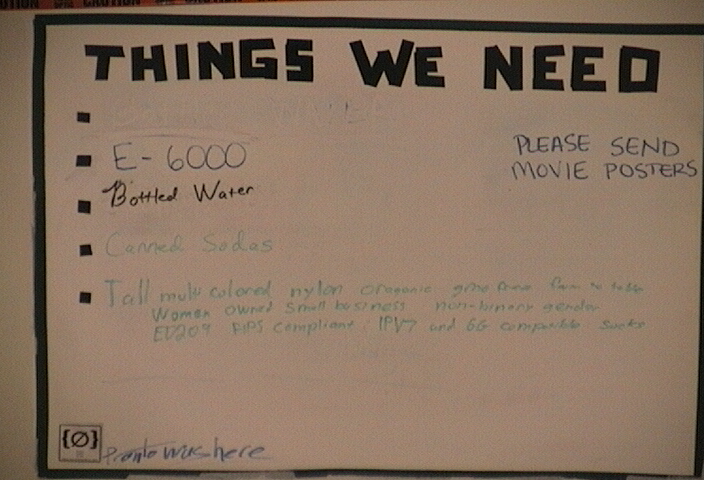 CAUTION
THINGS WE NEED
E-6000
Bottled Water
Canned Sodas
Tall multi colored nylon oroganic gmo free farm to table
Women owned small business non-binary gender
ED209 FIPS compliant, IPV7 and 6G compatible socks
PLEASE SEND
MOVIE POSTERS
{Ø}
Pronto was here